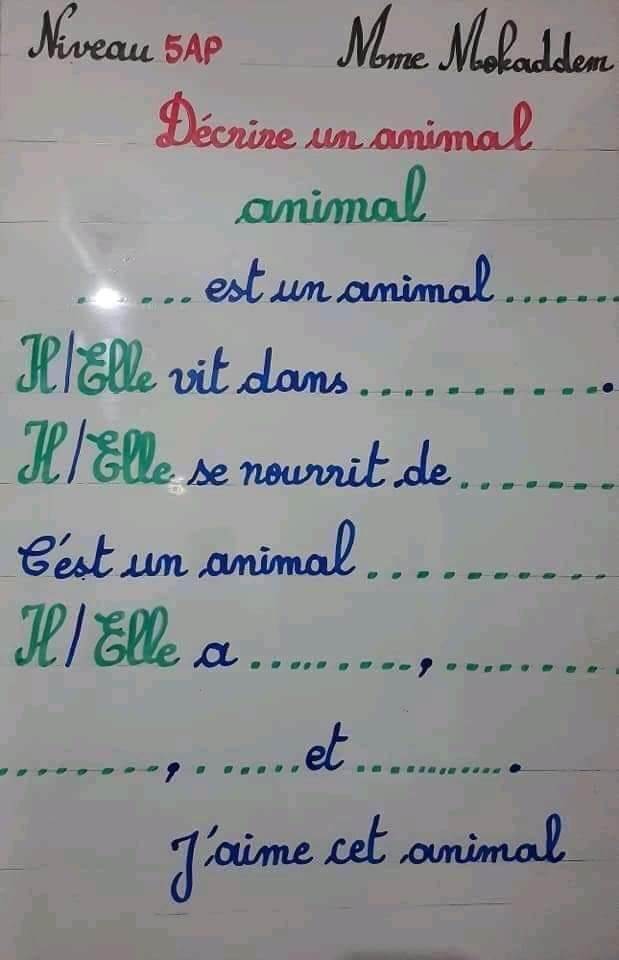 Niveau 5AP Mme Mokaddem
Décrire un animal
animal
....... est un animal .......
Il/Elle vit dans ...........
Il/Elle se nourrit de ........
C'est un animal ..........
Il/Elle a .........., .........
.........., ....... et .............
J'aime cet animal